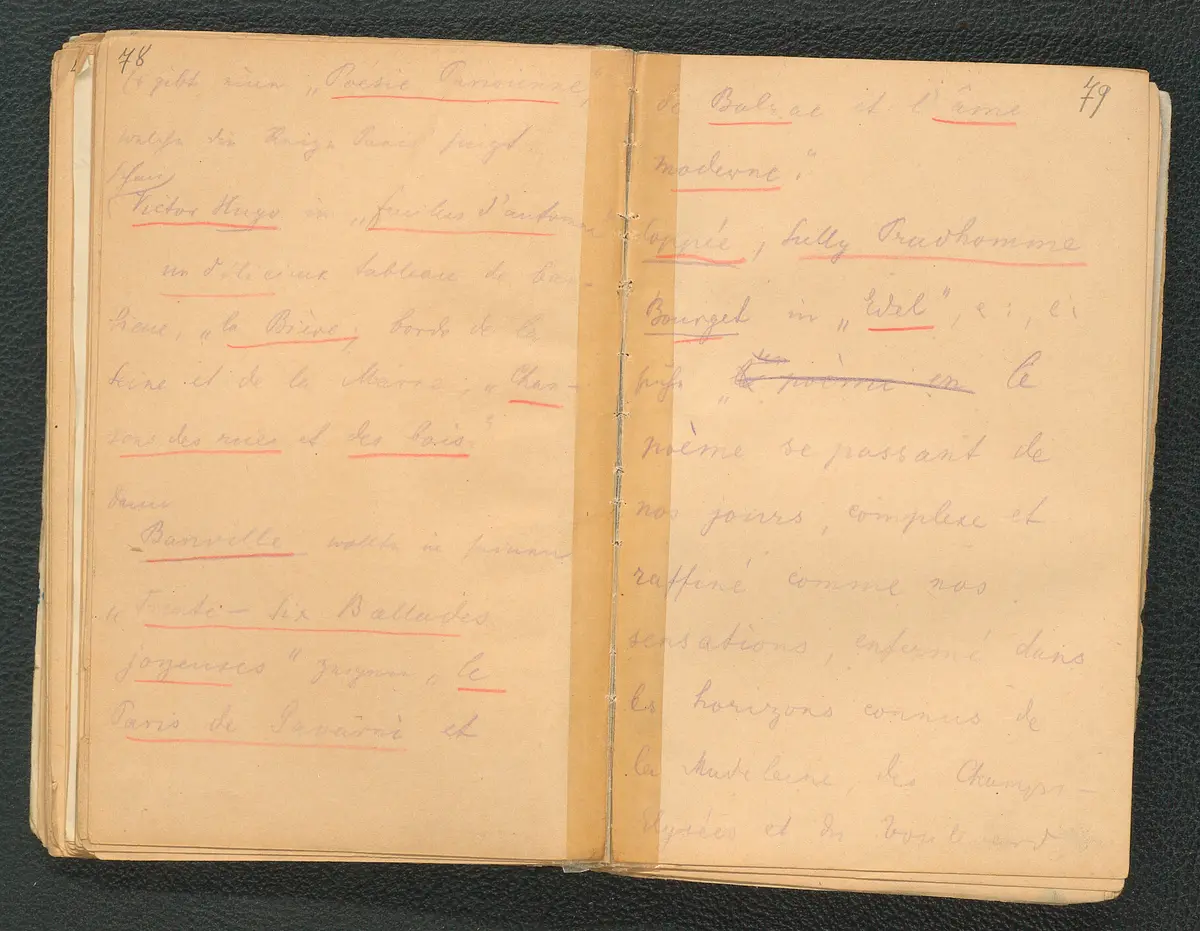 78
Es gibt eine „Poésie Parisienne“,
welche die Reize Paris singt.
Victor Hugo in „feuilles d'automne“
un délicieux tableau de ban-
lieue, „la Bièvre, bords de la
Seine et de la Marne; „Chan-
sons des rues et des bois“
dann
Banville wollte in seinen
„Trente-six Ballades
joyeuses“ zeigen „le
Paris de Gavarni et
79
de Balzac et l'âme
moderne“.
Coppée, Sully Prudhomme
Bourget in „Edel“,
le
poème se passant de
nos jours, complexe et
raffiné comme nos
sensations, enfermé dans
les horizons connus de
la Madeleine, des Champs-
Elysées et du boulevard